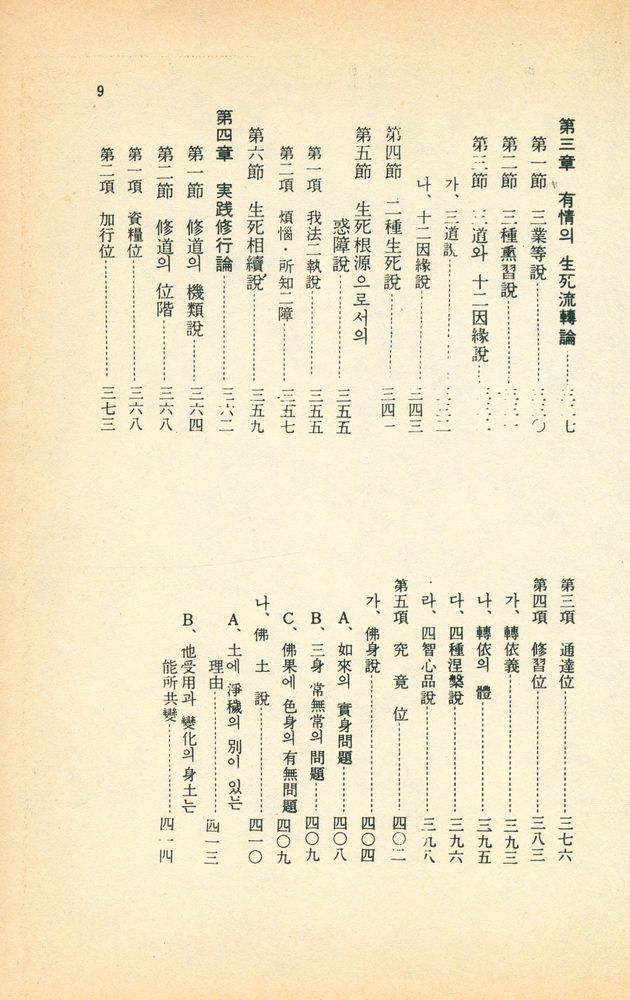 9
第三章 有情의 生死流轉論……三二七
第一節 三業等說……三三〇
第二節 三種熏習說……
第三節 三道와 十二因緣說……
가、三道說……三三二
나、十二因緣說……三四三
第四節 二種生死說……三四一
第五節 生死根源으로서의
惑障說……三五五
第一項 我法二執說……三五五
第二項 煩惱・所知二障……三五七
第六節 生死相續說……三五九
第四章 実践修行論……三六二
第一節 修道의 機類說……三六四
第二節 修道의 位階……三六八
第一項 資糧位……三六八
第二項 加行位……三七三
第三項 通達位……三七六
第四項 修習位……三八三
가、轉依義……三九三
나、轉依의 體……三九五
다、四種涅槃說……三九六
라、四智心品說……三九八
第五項 究竟位……四〇二
가、佛身說……四〇四
A、如來의 實身問題……四〇八
B、三身 常無常의 問題……四〇九
C、佛果에 色身의 有無問題 四〇九
나、佛土說……四一〇
A、土에 淨穢의 別이 있는
理由……四一三
B、他受用과 變化의 身土는
能所共變……四一四